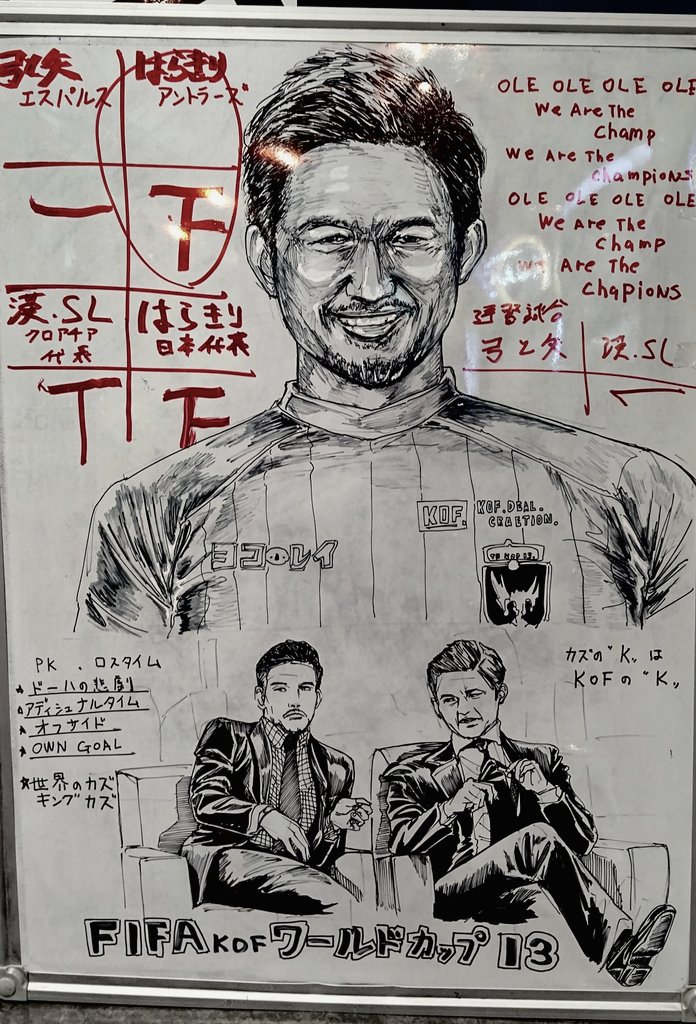 弓と矢
エスパルス
はらきり
アントラーズ
一
下
漢.SL
クロアチア
代表
はらきり
日本代表
T
下
OLE OLE OLE OLE
We Are The
Champ
We Are The
Champions
OLE OLE OLE OLE
We Are The
Champ
We Are The
Chapions
練習試合
弓と矢
漢.SL
KOF.
KOF.DEAL.
CRAETION.
ヨコ・レイ
PK . ロスタイム
★ドーハの悲劇
★アディショナルタイム
★オフサイド
★OWN GOAL
★世界のカズ
キングカズ
カズの"K"は
KOFの"K"
FIFA KOF ワールドカップ 13